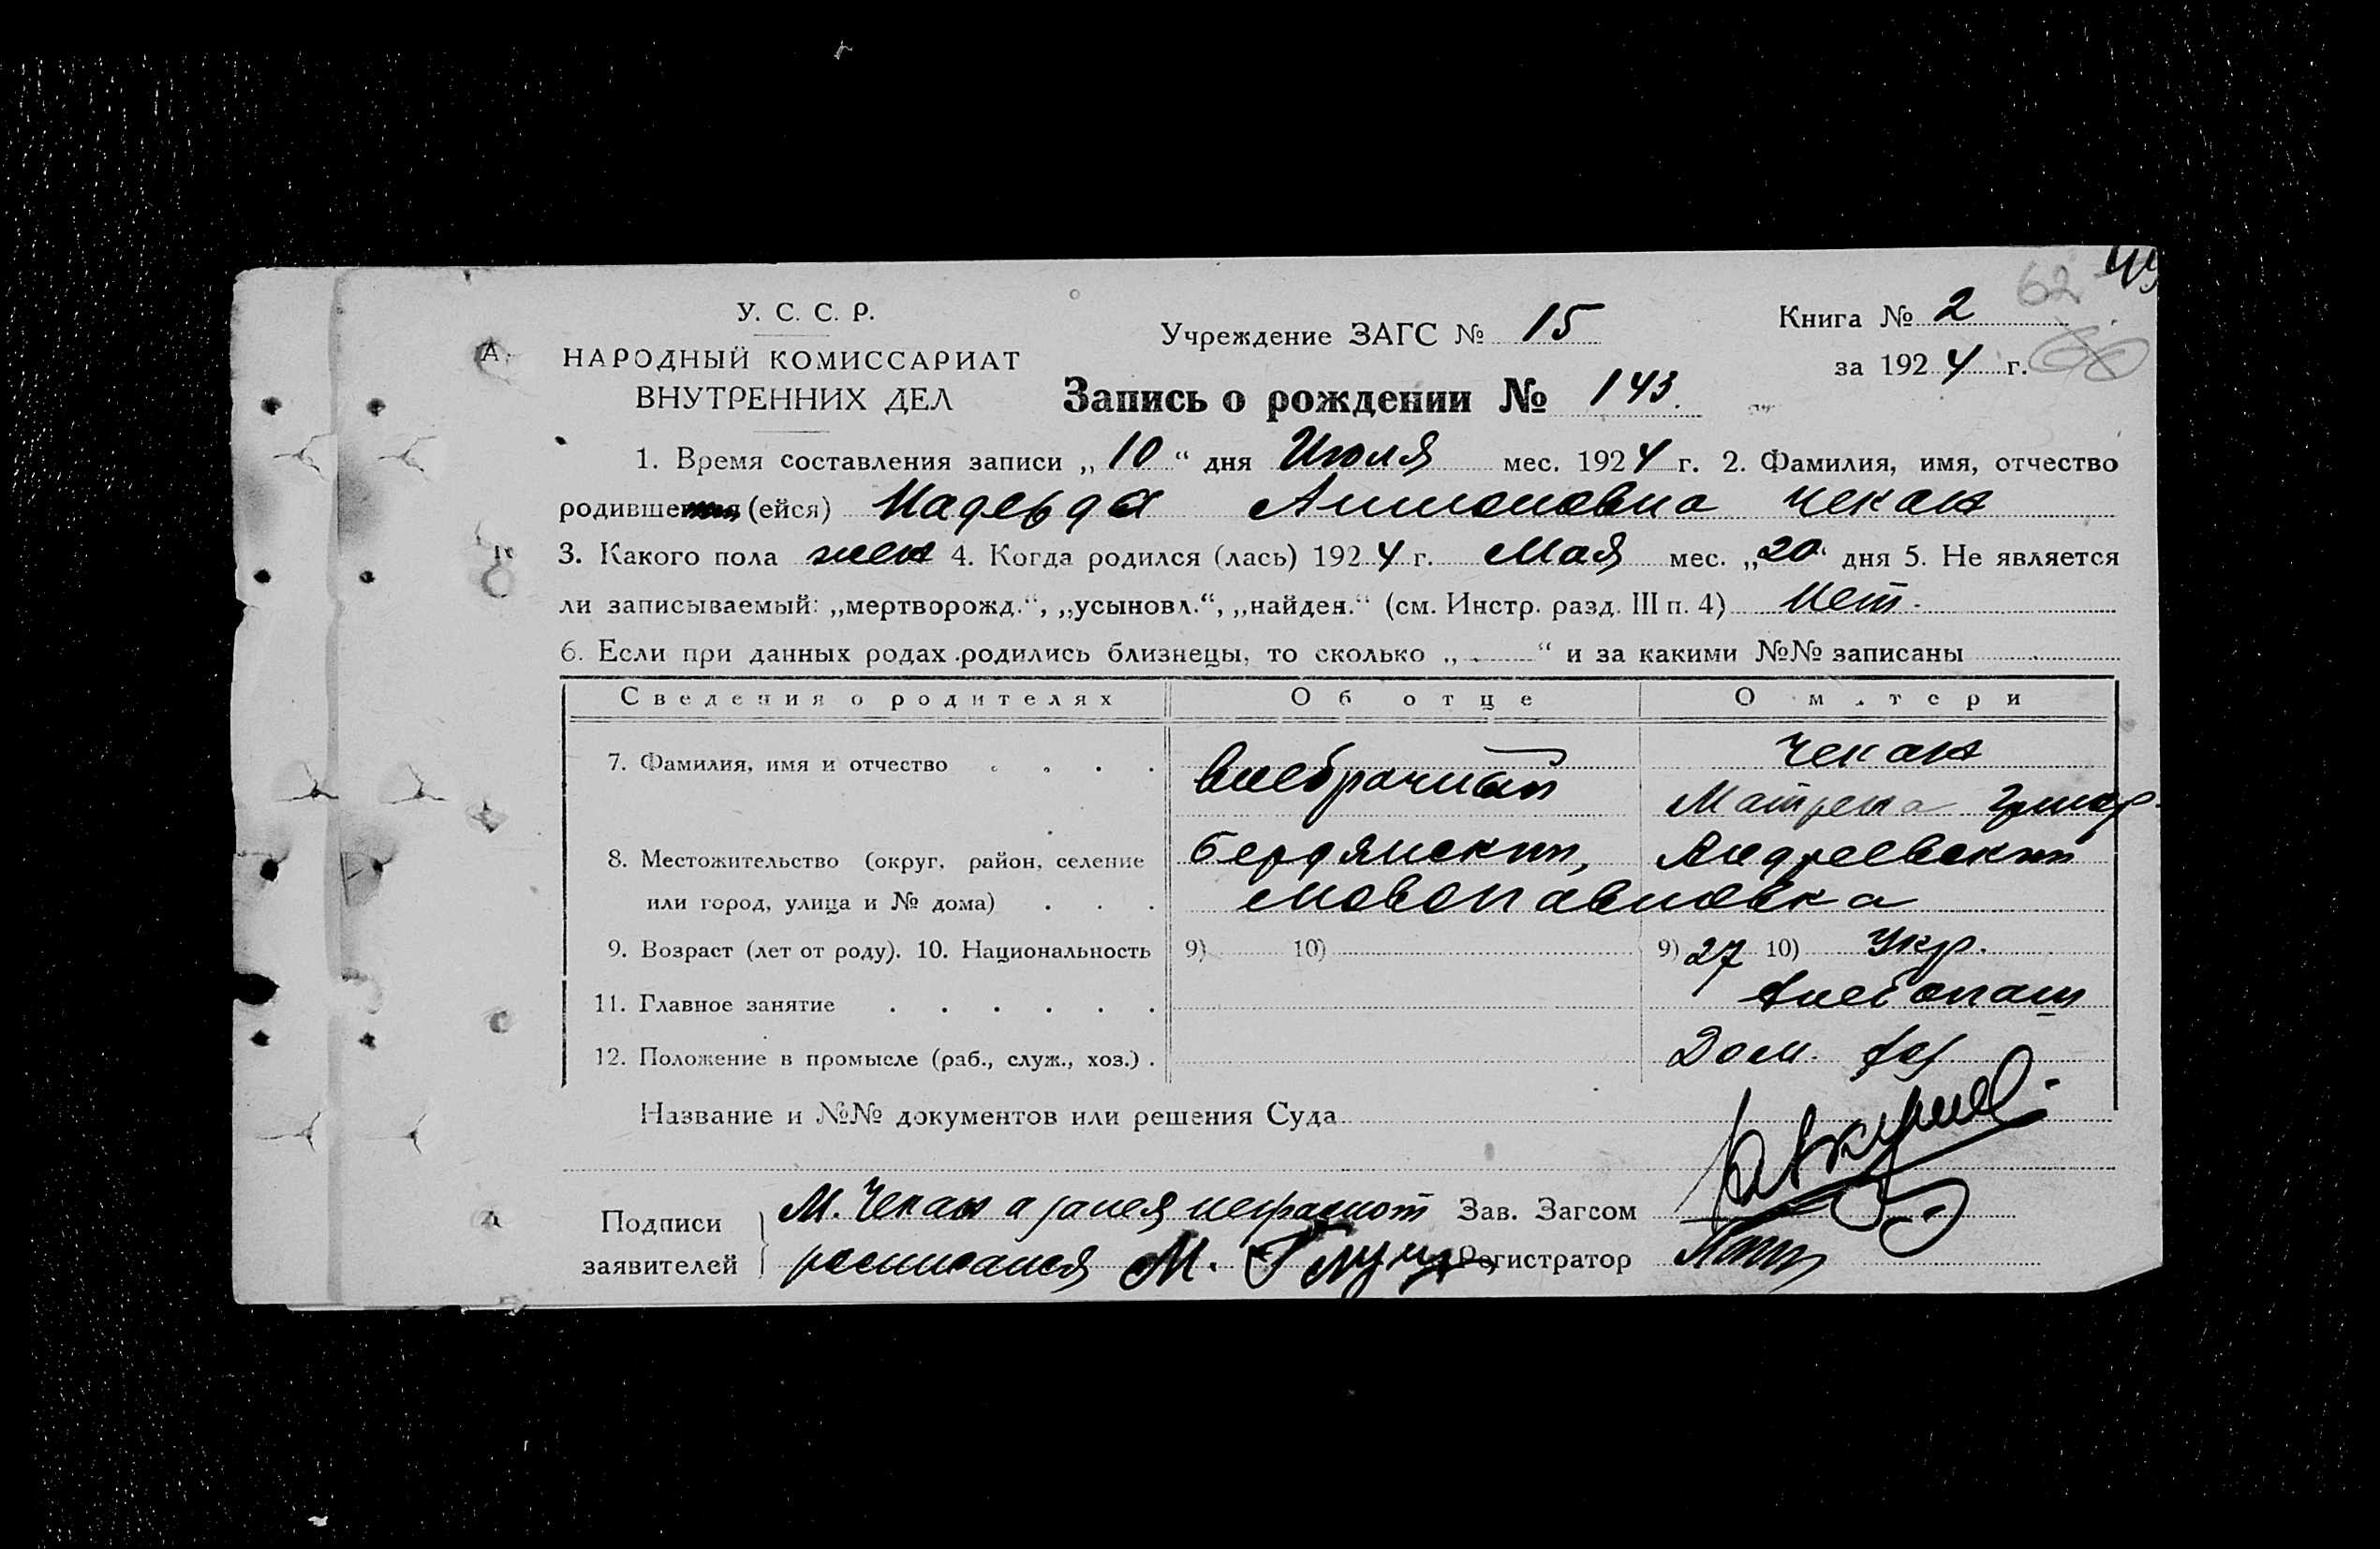 62
У. С. С. Р.
Учреждение ЗАГС № 15
Книга № 2
НАРОДНЫЙ КОМИССАРИАТ
ВНУТРЕННИХ ДЕЛ
за 1924 г.
Запись о рождении № 143
1. Время составления записи „10“ дня Июля мес. 1924 г. 2. Фамилия, имя, отчество
родивше (ейся) Надежда Антоновна Чекан
3. Какого пола жен 4. Когда родился (лась) 1924 г. Мая мес. „20“ дня 5. Не является
ли записываемый: „мертворожд.“, „усыновл.“, „найден.“ (см. Инстр. разд. III п. 4) Нет.
6. Если при данных родах родились близнецы, то сколько „ “ и за какими №№ записаны
Сведения о родителях Об отце О м тери
7. Фамилия, имя и отчество внебрачный Чекан
Матрена
8. Местожительство (округ, район, селение Бердянский, Андреевский
или город, улица и № дома) Новопавловка
9. Возраст (лет от роду). 10. Национальность 9) 10) 9) 27 10) Укр.
11. Главное занятие хлебопаш
12. Положение в промысле (раб., служ., хоз.) Дом. хоз
Название и №№ документов или решения Суда
Подписи М. Чекан а за нея неграмот Зав. Загсом
заявителей росписался М. Регистратор